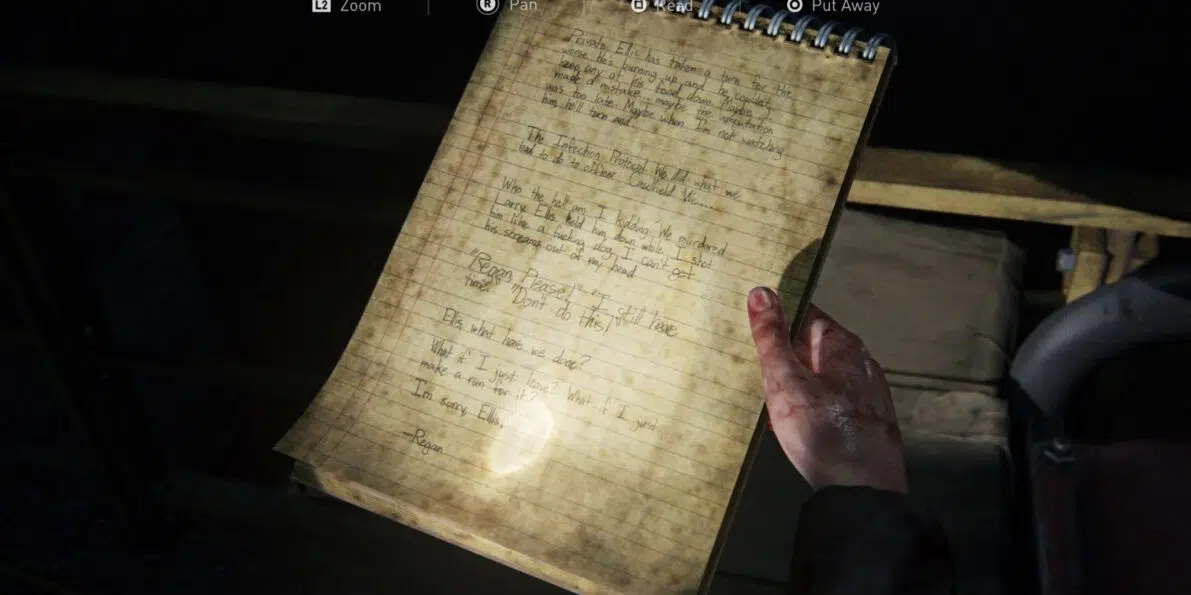 L2 Zoom R Pan Read Put Away
Private Ellis has taken a turn for the
worse. He's burning up and he couldn't
keep any of his food down. Maybe I
made a mistake - maybe the amputation
was too late. Maybe when I'm not watching
him, he'll turn and...
The Infection Protocol. We did what we
had to do to officer Caulfield. We....
Who the hell am I kidding. We murdered
Larry. Ellis held him down while I shot
him like a fucking dog. I can't get
his screams out of my head
"Regan, Please!" "I still have
time!" "Don't do this!"
Ellis, what have we done?
What if I just leave? What if I just
make a run for it?
I'm sorry, Ellis,
-Regan